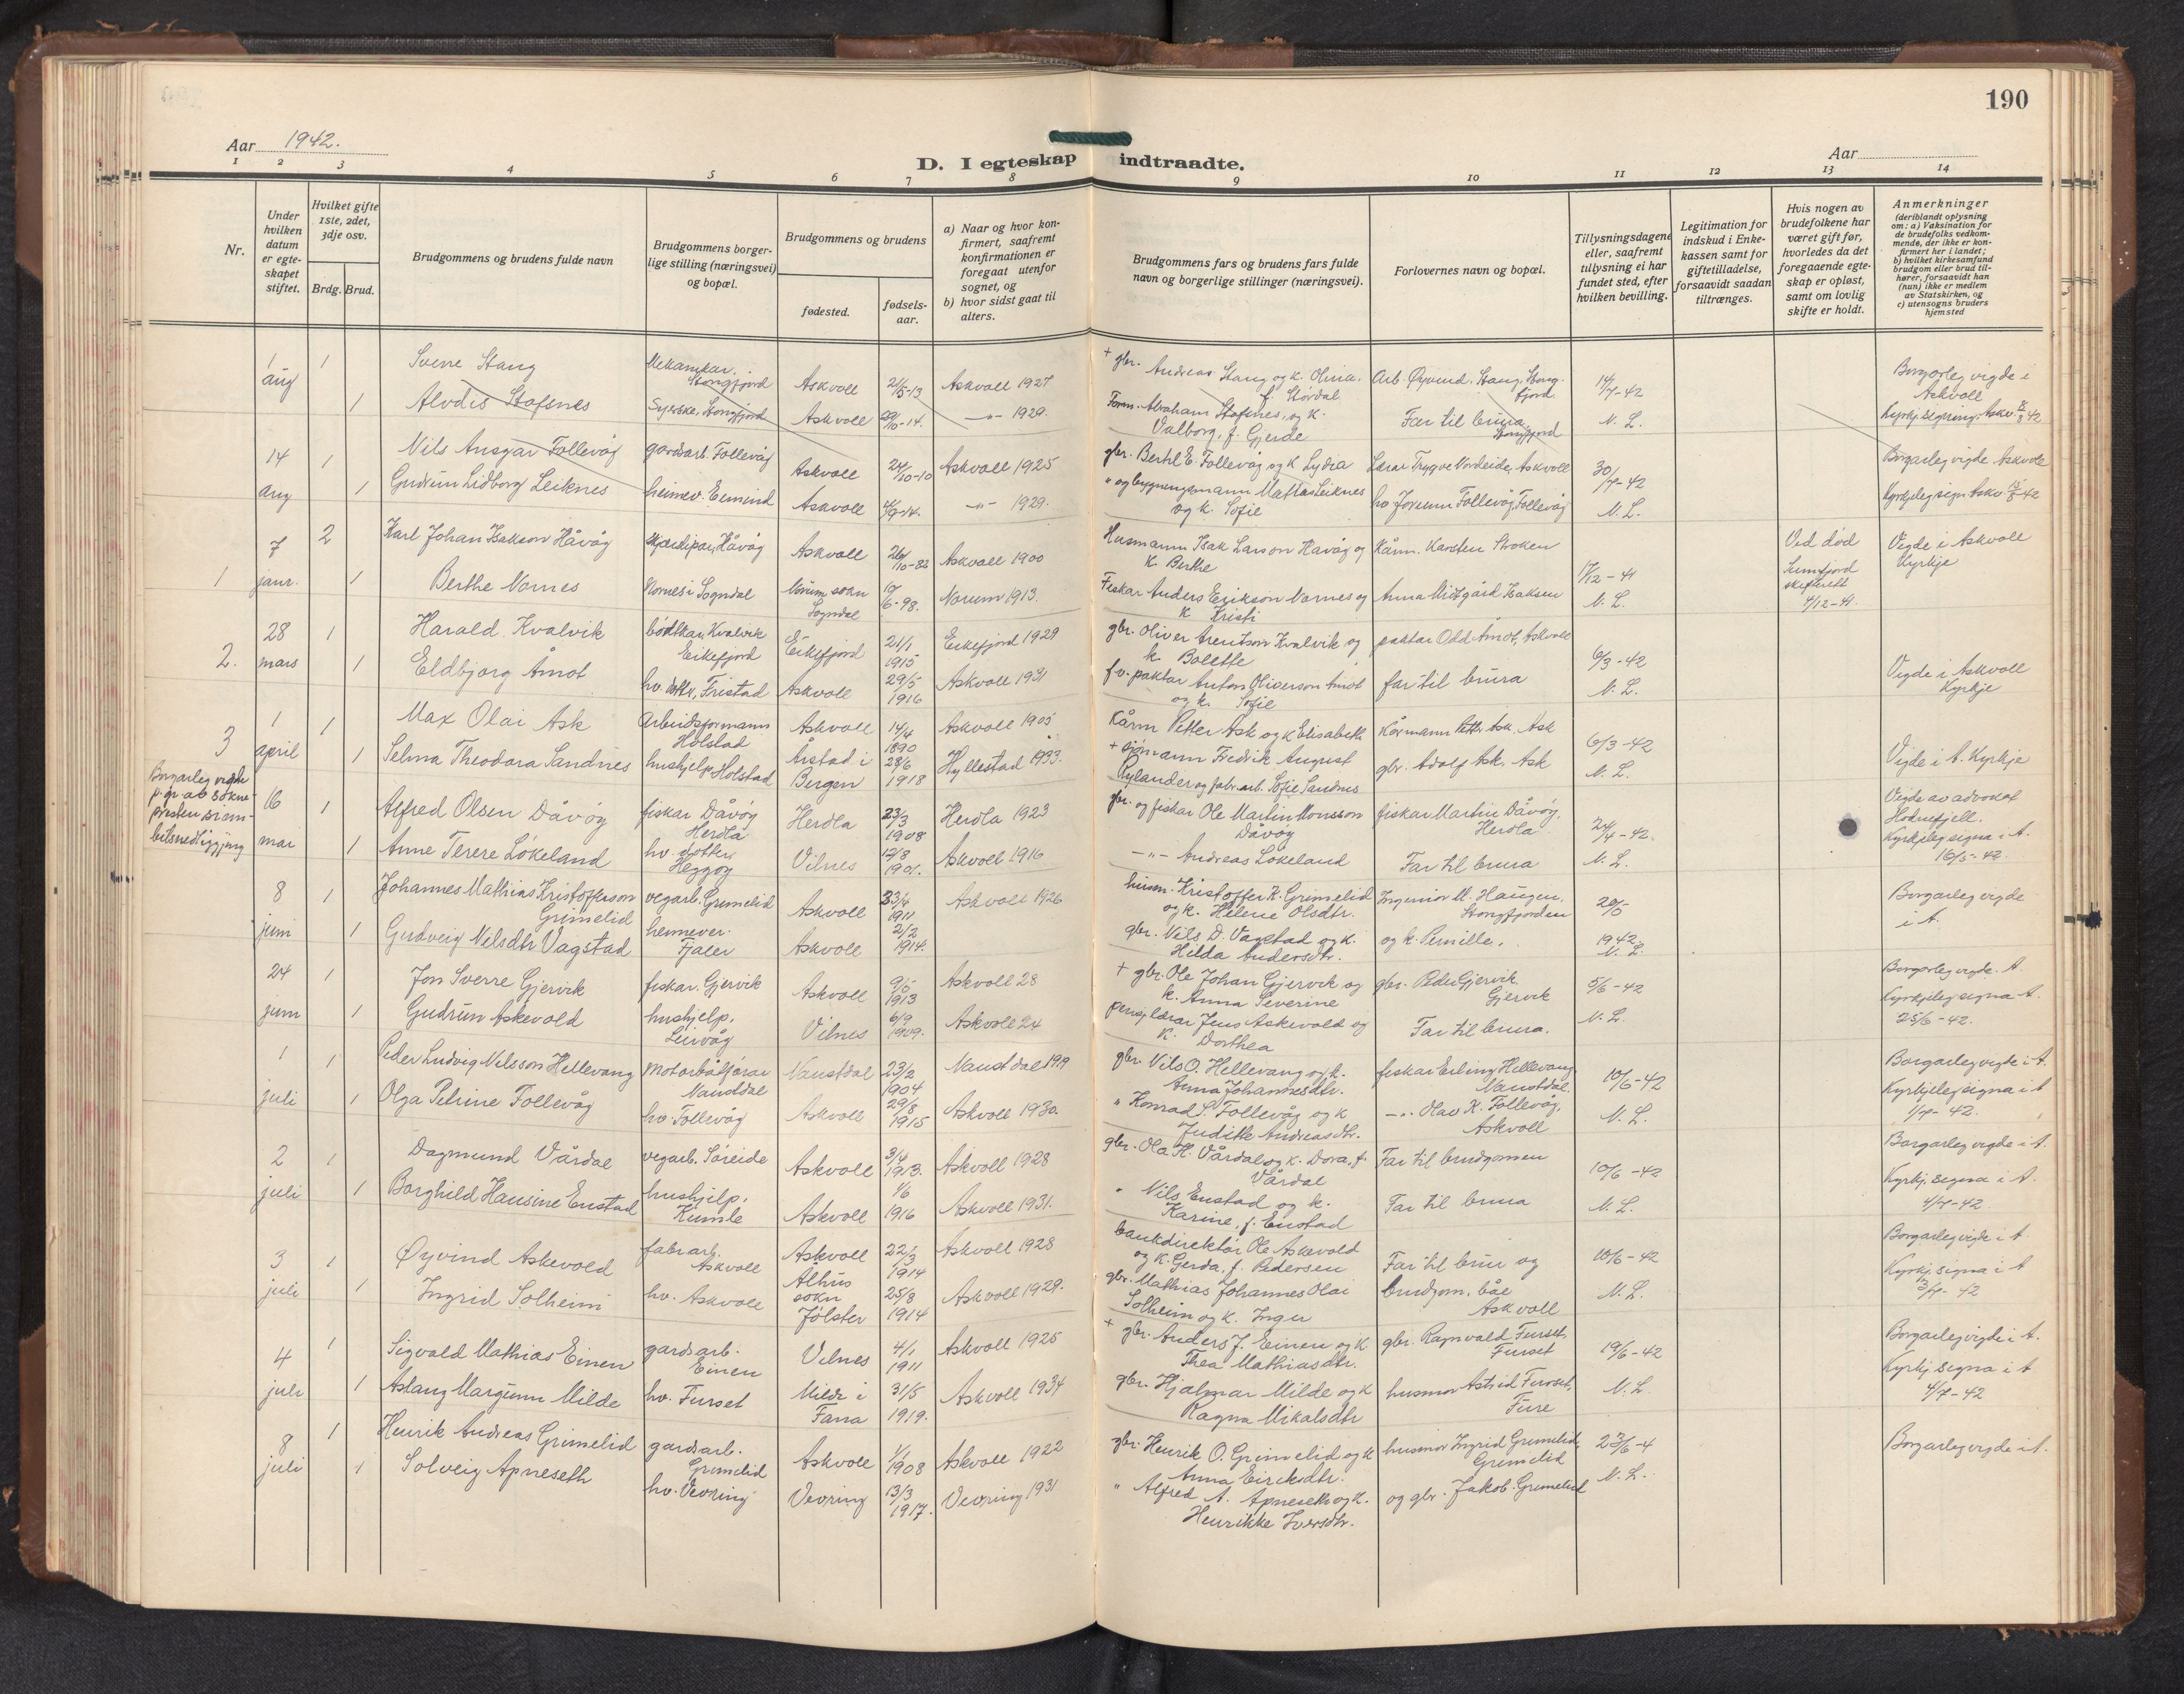 190
Aar 1942.
Aar
D. I egteskap indtraadte.
1 2 3 4 5 6 7 8 9 10 11 12 13 14
Nr.
Under hvilken datum er egteskapet stiftet.
Hvilket gifte 1ste, 2det, 3dje osv.
Brdg. Brud.
Brudgommens og brudens fulde navn
Brudgommens borgerlige stilling (næringsvei) og bopæl.
Brudgommens og brudens
fødested.
fødselsaar.
a) Naar og hvor konfirmert, saafremt konfirmationen er foregaat utenfor sognet, og
b) hvor sidst gaat til alters.
Brudgommens fars og brudens fars fulde navn og borgerlige stillinger (næringsvei).
Forlovernes navn og bopæl.
Tillysningsdagene eller, saafremt tillysning ei har fundet sted, efter hvilken bevilling.
Legitimation for indskud i Enkekassen samt for giftetilladelse, forsaavidt saadan tiltrænges.
Hvis nogen av brudefolkene har været gift før, hvorledes da det foregaaende egteskap er opløst, samt om lovlig skifte er holdt.
Anmerkninger
(deriblandt oplysning om: a) Vaksination for de brudefolks vedkommende, der ikke er konfirmert her i landet; b) hvilket kirkesamfund brudgom eller brud tilhører, forsaavidt han (hun) ikke er medlem av Statskirken, og c) utensogns bruders hjemsted
1 aug 1 Sverre Stang Mekanikar, Stongfjord Askvoll 21/5-13 Askvoll 1927 + gbr. Andreas Stang og k. Olina, f. Stordal Arb. Øyvind Stang, Stongfjord 14/7-42 Borgarleg vigde i Askvoll
1 Alvdis Stafsnes Syerske, Stongfjord Askvoll 29/10-14. -"- 1929. Form. Abraham Stafsnes, og k. Valborg, f. Gjerde Far til brura, Stongfjord N. L. Kyrkj. signing. Askv. 8/8 42
14 aug 1 Nils Ansgar Follevåg gardsarb. Follevåg Askvoll 24/10-10 Askvoll 1925 gbr. Bertil E. Follevåg og k Lydia Lærar Trygve Nordeide, Askvoll 30/7-42 Borgarleg vigde Askvoll
1 Gudrun Lidborg Leiknes heimev. Eimind Askvoll 4/9-14. -"- 1929. " og bygningsmann Mattias Leiknes og k. Sofie hv. Jorunn Follevåg, Follevåg N. L. Kyrkjeleg sign. Askv. 15/8-42
1 7 janr. 2 Karl Johan Isakson Håvåg Håvåg Askvoll 26/10-82 Askvoll 1900 Husmann Isak Larson Håvåg og k. Berthe Kårm. Karsten Stroken 17/12-41 Ved død Vigde i Askvoll Kyrkje
1 Berthe Nornes Nornes i Sogndal Norum sokn Sogndal 19/6-98. Norum 1913. Fiskar Anders Erikson Nornes og k Kristi Anna Midtgård Isaksen N. L. Sunnfjord skifterett 4/12-41.
2. 28 mars 1 Harald Kvalvik bødkar, Kvalvik Eikefjord Eikefjord 21/1 1915 Eikefjord 1929 gbr. Oliver Arentson Kvalvik og k. Bolette paktar Odd Åmot, Askvoll 6/3-42 Vigde i Askvoll Kyrkje
1 Eldbjørg Åmot hv. Fristad Askvoll 29/5 1916 Askvoll 1931 f.v. paktar Anton Oliverson Åmot og k. Sofie far til brura N. L.
3 1 april 1 Max Olai Ask Arbeidsformann Holstad Askvoll 14/4 1890 Askvoll 1905 Kårm Petter Ask og k Elisabeth Kårmann Petter Ask, Ask 6/3-42 Vigde i A. Kyrkje
1 Selma Theodora Sandnes hushjelp Holstad Årstad i Bergen 28/6 1918 Hyllestad 1933. + sjømann Fredrik August Rylander og fabr. arb. Sofie Sandnes gbr. Adolf Ask, Ask N. L.
Borgarleg vigde p. gr. av sokneprestens embetsnedleggjing
16 mai 1 Alfred Olsen Dåvøy fiskar Dåvøy Herdla Herdla 23/3 1908 Herdla 1923 gbr. og fiskar Ole Martin Monsson Dåvøy fiskar Martin Dåvøy, Herdla 24/4-42. Vigde av advokat Hodnefjell.
1 Anne Terere Løkeland hv. dotter, Heggøy Vilnes 12/8 1901. Askvoll 1916 -"- Andreas Løkeland Far til brura N. L. Kyrkjeleg signe i A. 16/5-42.
8 juni 1 Johannes Mathias Kristofferson Grimelid vegarb. Grimelid Askvoll 23/4 1911 Askvoll 1926 husm. Kristoffer K. Grimelid og k. Helene Olsdtr. Ingeniør M. Haugen, Stongfjorden 20/5 1942 Borgarleg vigde i A.
1 Gudveig Nilsdtr Vagstad heimever. Fjaler Askvoll 2/2 1914. gbr. Nils D. Vagstad og k. Hilda Andersdtr. og k. Pernille. N. L.
24 juni 1 Jon Sverre Gjervik fiskar. Gjervik Askvoll 9/5 1913 Askvoll 28 + gbr. Ole Johan Gjervik og k. Anna Severine gbr. Peder Gjervik Gjervik 5/6-42 Borgarleg vigde. A.
1 Gudrun Askevold hushjelp. Leirvåg Vilnes 6/9 1909. Askvoll 24 pensj. lærar Jens Askevold og k. Dorthea Far til brura. N. L. Kyrkjeleg signa A. 25/6-42.
1 juli 1 Peder Ludvig Nilsson Hellevang motorbåtførar Naustdal Naustdal 23/2 1904 Naustdal 1919 gbr. Nils O. Hellevang og k. Anna Johannesdtr. fiskar Erling Hellevang Naustdal 10/6-42 Borgarleg vigde i A.
1 Olga Petrine Follevåg hv. Follevåg Askvoll 29/8 1915 Askvoll 1930. " Konrad P. Follevåg og k Judith Andreasdtr. -"- Olav K. Follevåg, Askvoll N. L. Kyrkjeleg signa i A 1/7-42.
2 juli 1 Dagmund Vårdal vegarb. Søreide Askvoll 3/4 1913. Askvoll 1928 gbr. Ola H. Vårdal og k. Dora, f. Vårdal Far til brudgomen 10/6-42 Borgarleg vigde i A.
1 Borghild Hansine Enstad hushjelp. Kumle Askvoll 1/6 1916 Askvoll 1931. " Nils Enstad og k. Karine, f. Enstad Far til brura N. L. Kyrkj. signa i A. 4/7-42
3 juli 1 Øyvind Askevold fabr. arb. Askvoll Askvoll 22/3 1914 Askvoll 1928 bankdirektør Ole Askevold og k. Gerda, f. Pedersen Far til brur og brudgom, båe Askvoll 10/6-42 Borgarleg vigde i A.
1 Ingrid Solheim hv. Askvoll Ålhus sokn Jølster 25/8 1914 Askvoll 1929. gbr. Mathias Johannes Olai Solheim og k. Inger N. L. Kyrkj. signa i A 3/7-42
4 juli 1 Sigvald Mathias Einen gardsarb. Einen Vilnes 4/1 1911 Askvoll 1925 + gbr. Anders J. Einen og k Thea Mathiasdtr. gbr. Ragnvald Furset, Furset 19/6-42 Borgarleg vigde i A.
1 Aslaug Margunn Milde hv. Furset Milde i Fana 31/5 1919. Askvoll 1934 gbr. Hjalmar Milde og k Ragna Mikalsdtr husmor Astrid Furset, Fure N. L. Kyrkj. signa i A 4/7-42
8 juli 1 Henrik Andreas Grimelid gardsarb. Grimelid Askvoll 1/1 1908 Askvoll 1922 gbr. Henrik O. Grimelid og k Anna Eiriksdtr. husmor Ingrid Grimelid, Grimelid 23/6-4 Borgarleg vigde i A.
1 Solveig Apneseth hv. Vevring Vevring 13/3 1917. Vevring 1931 " Alfred A. Apneseth og k. Henrikke Iversdtr. og gbr. Jakob Grimelid N. L.